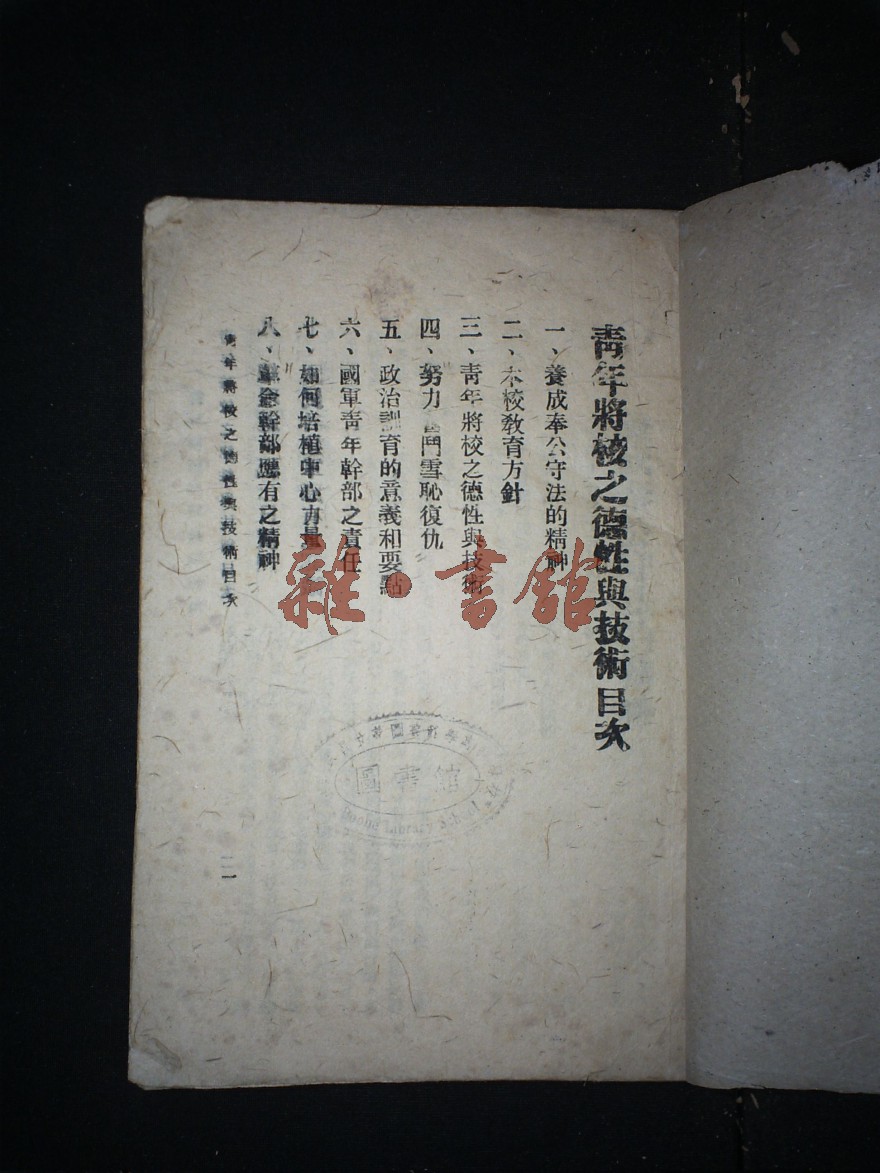 青年將校之德性與技術目次
一、養成奉公守法的精神
二、本校教育方針
三、青年將校之德性與技術
四、努力 鬥雪恥復仇
五、政治訓育的意義和要點
六、國軍青年幹部之責任
七、如何培植中心力量
八、革命幹部應有之精神
青年將校之德性與技術目次
一
雜·書館
圖書館